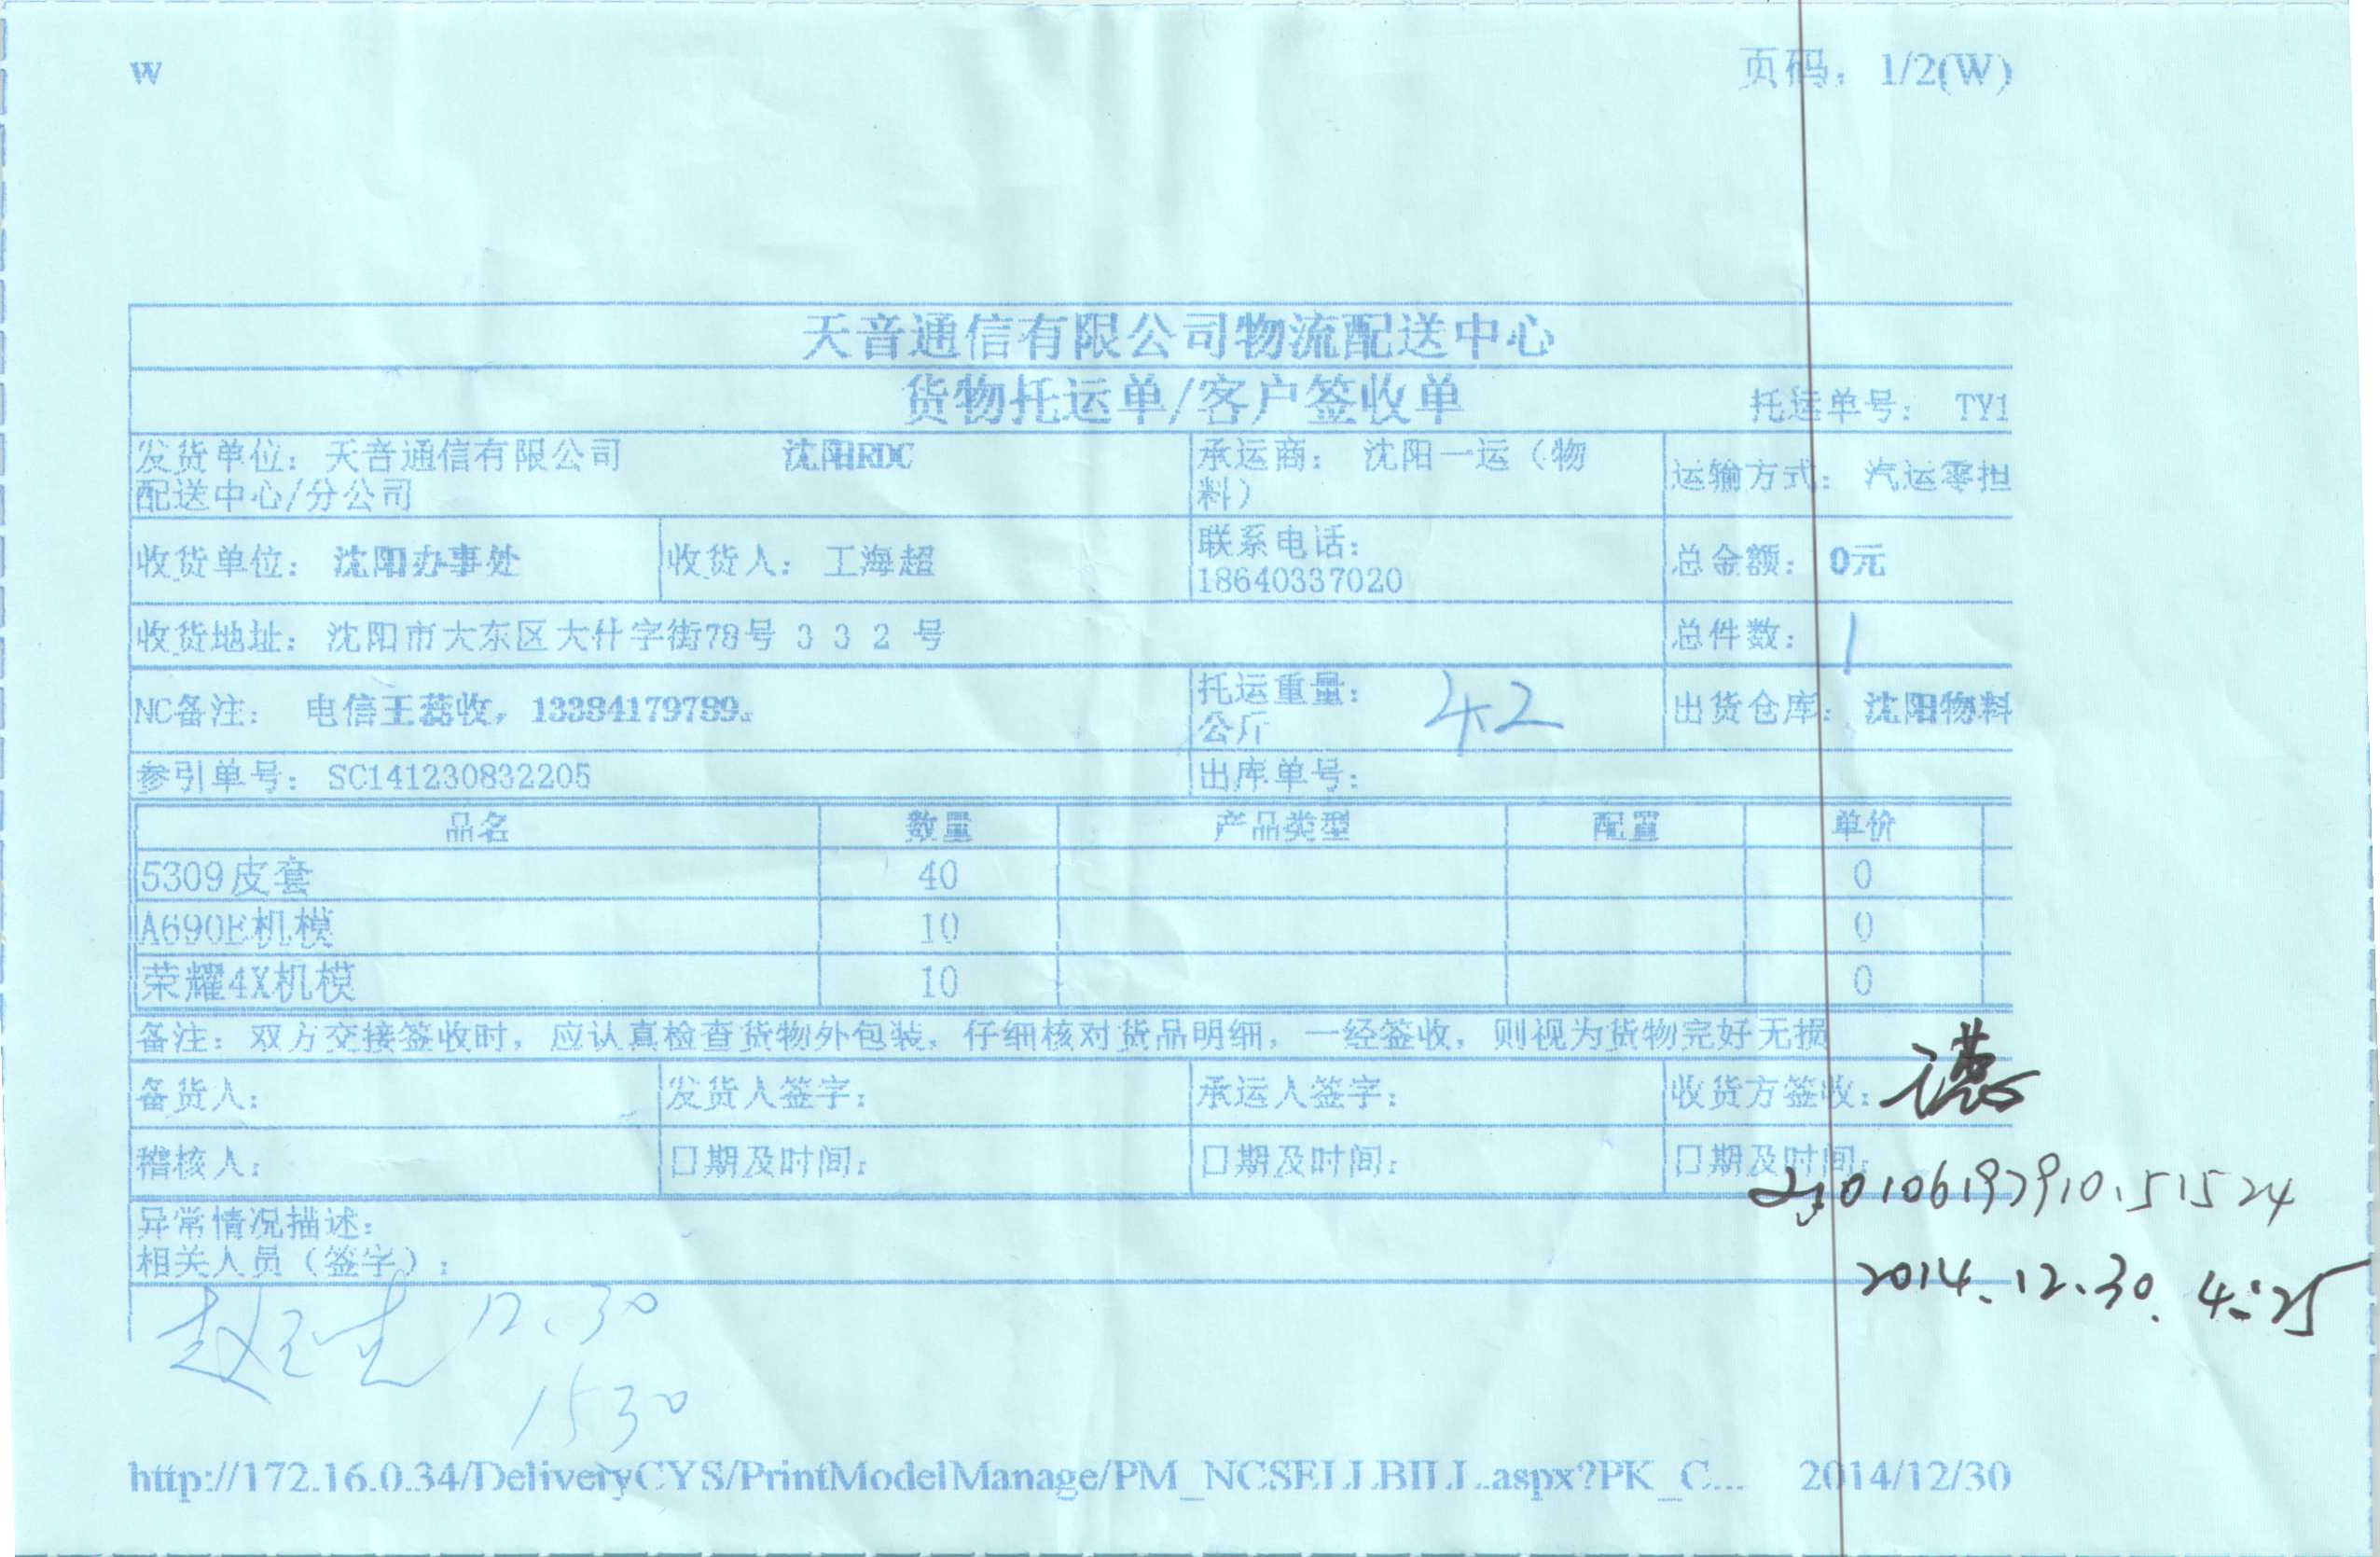 W
页码： 1/2(W)
天音通信有限公司物流配送中心
货物托运单/客户签收单
托运单号： TY1
发货单位：天音通信有限公司 沈阳RDC
配送中心/分公司
承运商： 沈阳一运（物
料）
运输方式： 汽运零担
收货单位： 沈阳办事处
收货人： 王海超
联系电话：
18640337020
总金额： 0元
收货地址： 沈阳市大东区大什字街78号 3 3 2 号
总件数： 1
NC备注： 电信王蕊收，13384179789。
托运重量： 42
公斤
出货仓库： 沈阳物料
参引单号： SC141230832205
出库单号：
品名 数量 产品类型 配置 单价
5309皮套 40 0
A690E机模 10 0
荣耀4X机模 10 0
备注：双方交接签收时，应认真检查货物外包装，仔细核对货品明细，一经签收，则视为货物完好无损
备货人：
发货人签字：
承运人签字：
收货方签收：
稽核人：
日期及时间：
日期及时间：
日期及时间：
2014.12.30. 4:25
异常情况描述：
相关人员（签字）：
12.30
1530
http://172.16.0.34/DeliveryCYS/PrintModelManage/PM_NCSELLBILL.aspx?PK_C... 2014/12/30